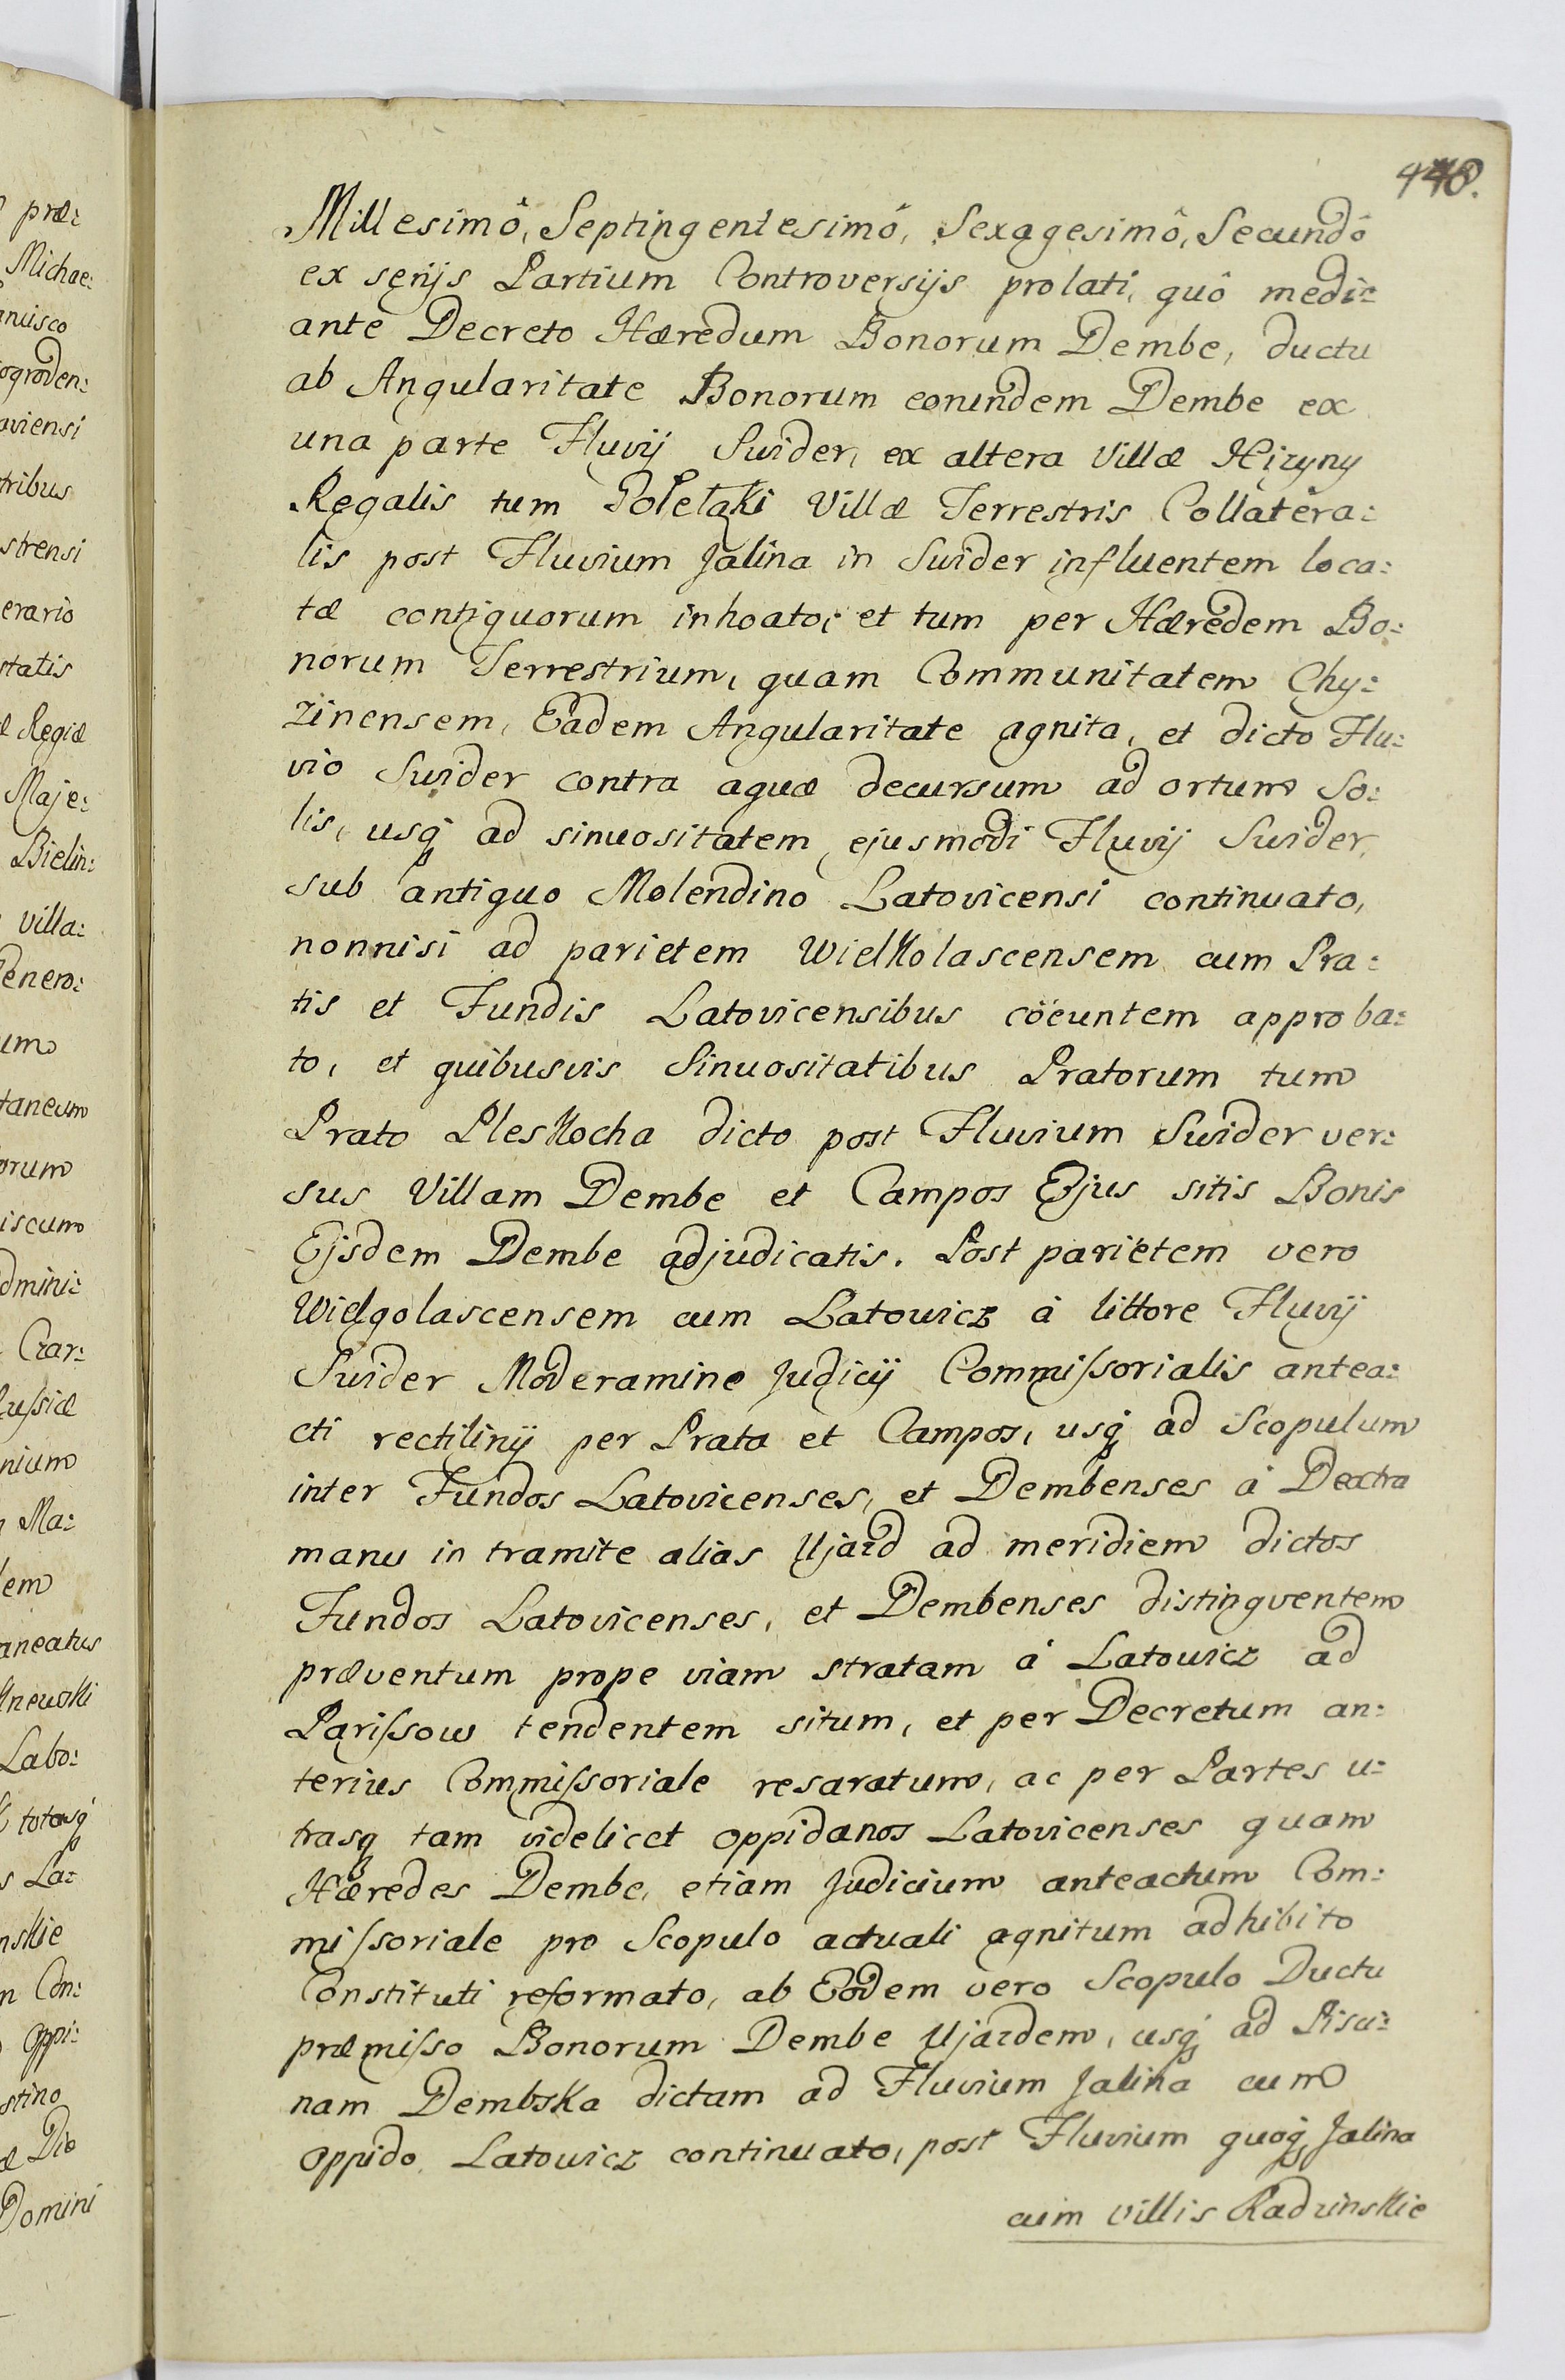 præ:
Michae:
ogroden:
oviensi
tribus
strensi
erario
statis
æ Regiæ
Maje:
Bielin:
villa:
Genero:
um
taneum
orum
iscum
dmini:
Czar:
nium
Ma:
lem
aneatus
Labo:
totasq́
s La:
nskie
n Con:
Oppi:
stino
Domini
Millesimô, Septingentesimô, Sexagesimô, Secundô
ex serijs Partium Controversijs prolati, quô medi:
ante Decreto Hæredum Bonorum Dembe, ductu
ab Angularitate Bonorum eorundem Dembe ex
una parte Fluvij Swider, ex altera Villæ Hizyny
Regalis tum Poletaki Villæ Terrestris Collatera:
lis post Fluvium Jalina in Swider influentem loca:
tæ contiguorum inhoato, et tum per Hæredem Bo:
norum Terrestrium, quam Communitatem Chy:
zinensem, Eadem Angularitate agnita, et dicto Flu:
vio Swider contra aquæ decursum ad ortum So:
lis, usq́ ad sinuositatem ejusmodi Fluvij Swider,
sub antiquo Molendino Latovicensi continuato,
nonnisi ad parietem Wielkolascensem cum Pra:
tis et Fundis Latovicensibus cöeuntem approba:
to, et quibusvis Sinuositatibus Pratorum tum
Prato Pleskocha dicto post Fluvium Swider ver:
sus Villam Dembe et Campos Ejus sitis Bonis
Ejsdem Dembe adjudicatis. Post parietem vero
Wielgolascensem cum Latowicz á littore Fluvij
Swider Moderamine Judicij Commissorialis antea:
cti rectilinij per Prata et Campos, usq́ ad Scopulum
inter Fundos Latovicenses, et Dembenses á Dextra
manu in tramite alias Ujazd ad meridiem dictos
Fundos Latovicenses, et Dembenses distingventem
præventum prope viam stratam á Latowicz ad
Parissow tendentem situm, et per Decretum an:
terius Commissoriale resaratum, ac per Partes u:
trasq́ tam videlicet Oppidanos Latovicenses quam
Hæredes Dembe, etiam Judicium anteactum Com:
missoriale pro Scopulo actuali agnitum adhibito
Constituti reformato, ab Eodem vero Scopulo Ductu
præmisso Bonorum Dembe Ujazdem, usq́ ad Pisci:
nam Dembska dictam ad Fluvium Jalina cum
Oppido Latowicz continuato, post Fluvium quoq́ Jalina
cum villis Radzinskie